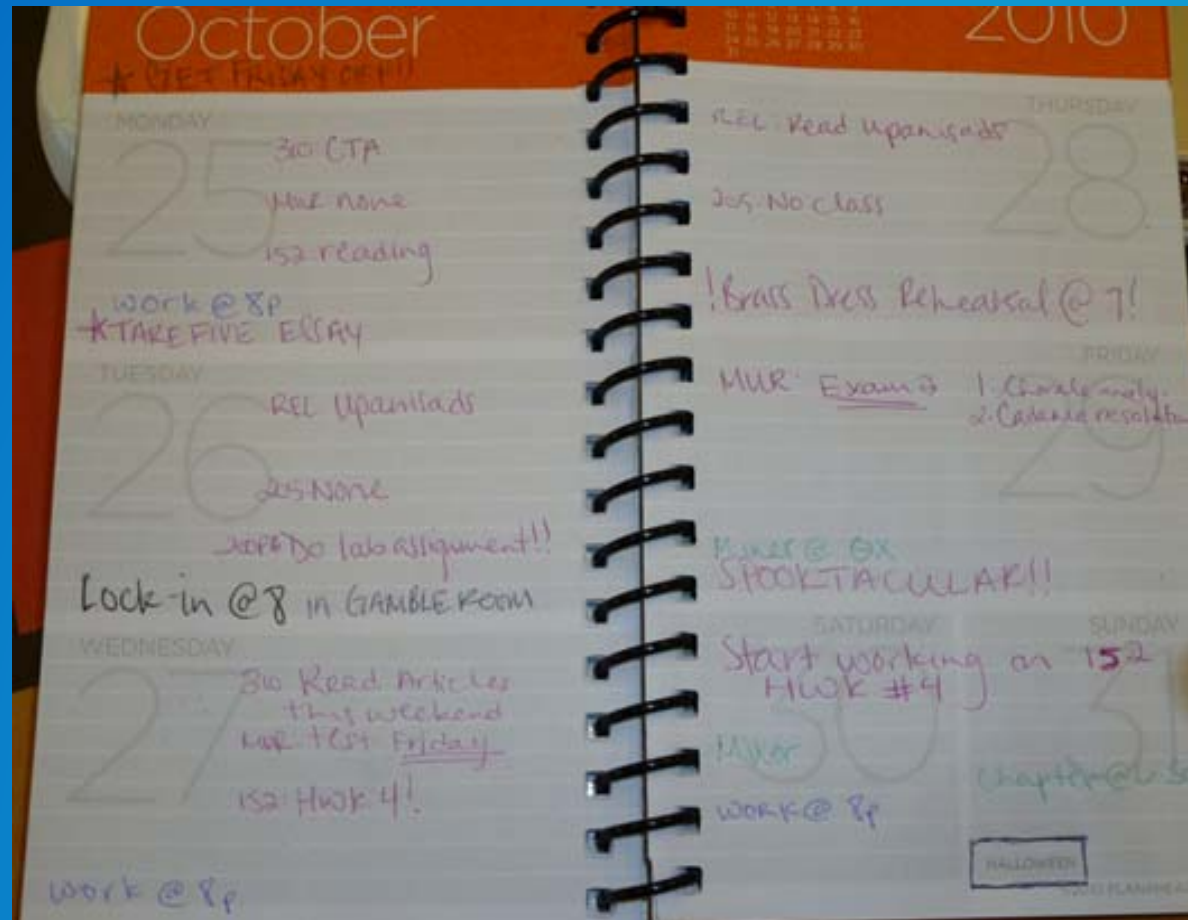 October
★ GET FRIDAY OFF!!
MONDAY
25
310: CTA
MUR: none
152: reading
work @ 8p
★TAKE FIVE ESSAY
TUESDAY
26
REL: Upanisads
205: None
Do lab assignment!!
Lock-in @ 8 in GAMBLE ROOM
WEDNESDAY
27
310: Read Articles
this weekend
MUR: test Friday
152: HWK 4!
work @ 8p
2010
THURSDAY
28
REL: Read Upanisads
205: No class
!Brass Dress Rehearsal @ 7!
FRIDAY
29
MUR: Exam →
1. Chorale analy.
2. Cadence
Mixer @ ΘX
SPOOKTACULAR!!
SATURDAY
30
SUNDAY
31
Start working on 152
HWK #4
Mixer
work @ 8p
Chapter @
HALLOWEEN